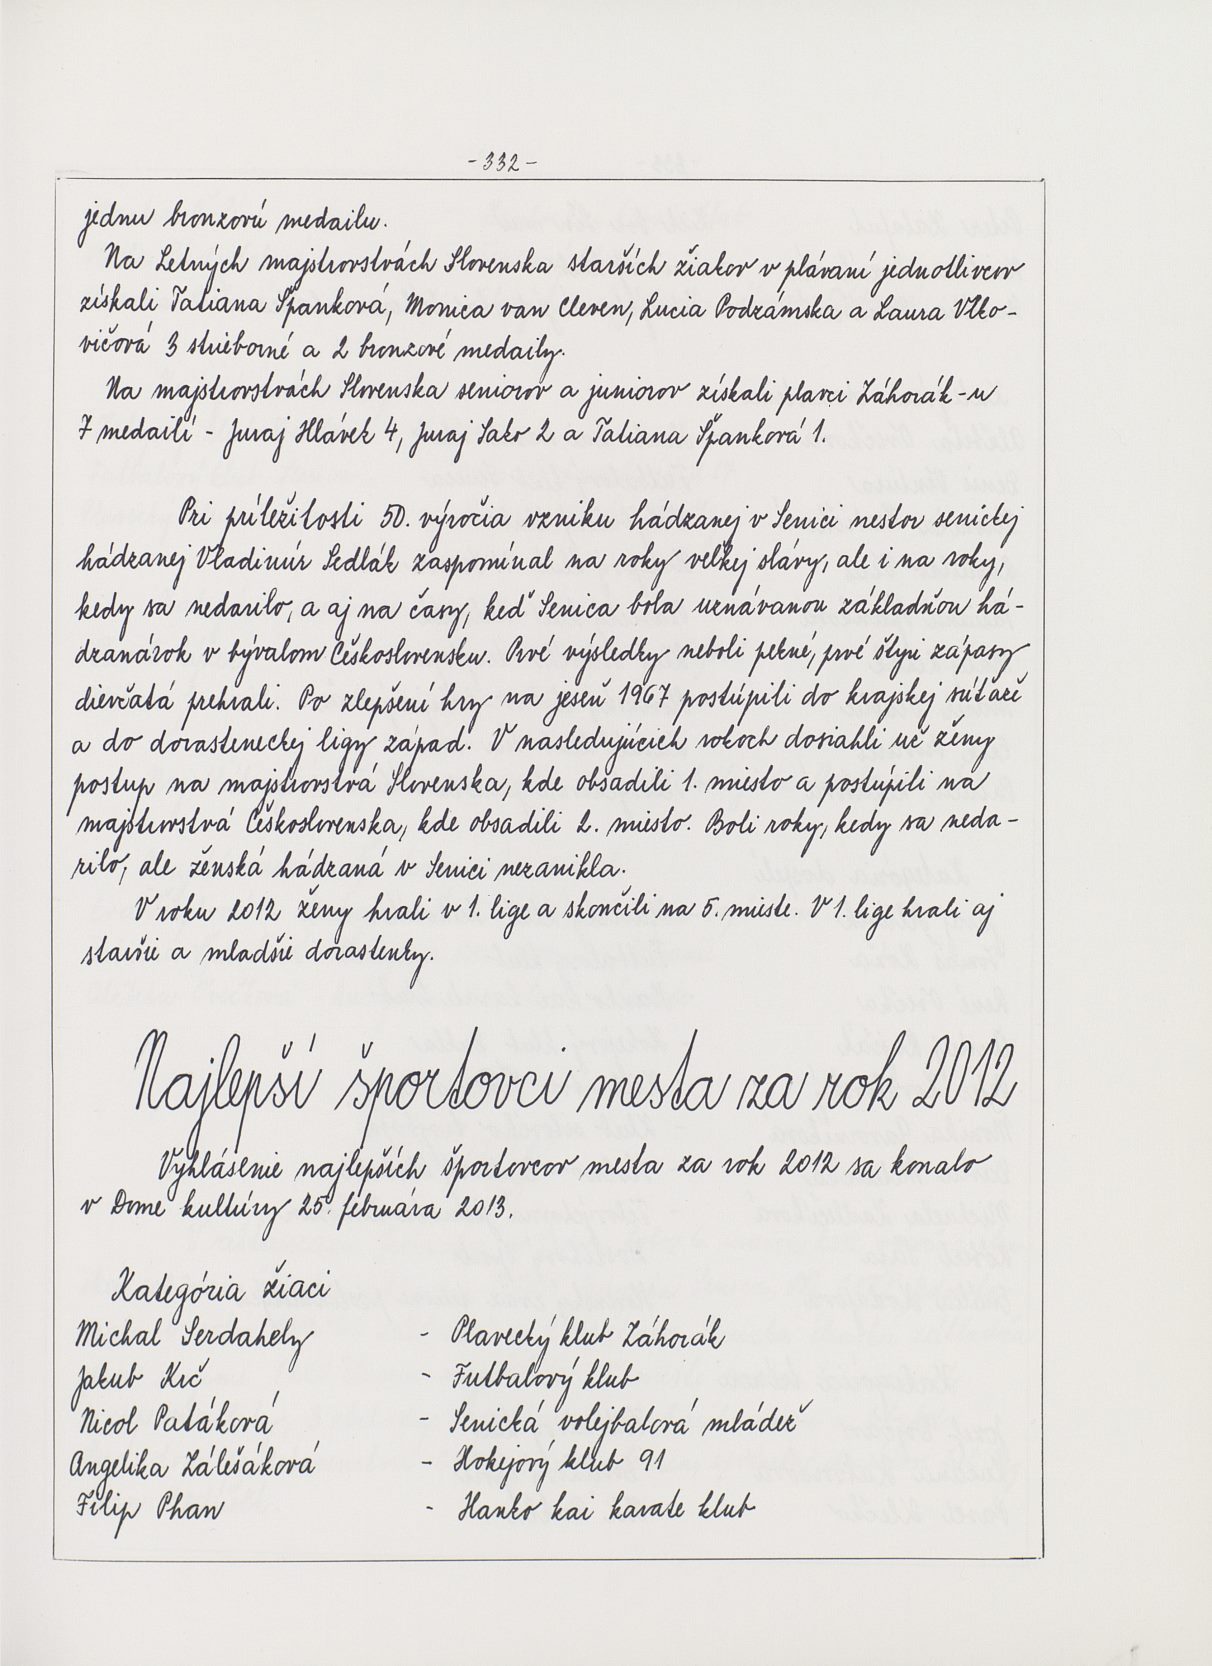 - 332 -
jednu bronzovú medailu.
Na Letných majstrovstvách Slovenska starších žiakov v plávaní jednotlivcov
získali Tatiana Španková, Monica van Cleven, Lucia Podzámska a Laura Vlko-
vičová 3 strieborné a 2 bronzové medaily.
Na majstrovstvách Slovenska seniorov a juniorov získali plavci Záhorák-u
7 medailí - Juraj Hlávek 4, Juraj Sako 2 a Tatiana Španková 1.
Pri príležitosti 50. výročia vzniku hádzanej v Senici nestor senickej
hádzanej Vladimír Sedlák zaspomínal na roky veľkej slávy, ale i na roky,
kedy sa nedarilo, a aj na časy, keď Senica bola uznávanou základňou há-
dzanárok v bývalom Československu. Prvé výsledky neboli pekné, prvé štyri zápasy
dievčatá prehrali. Po zlepšení hry na jeseň 1967 postúpili do krajskej súťaže
a do dorasteneckej ligy západ. V nasledujúcich rokoch dosiahli už ženy
postup na majstrovstvá Slovenska, kde obsadili 1. miesto a postúpili na
majstrovstvá Československa, kde obsadili 2. miesto. Boli roky, kedy sa neda-
rilo, ale ženská hádzaná v Senici nezanikla.
V roku 2012 ženy hrali v 1. lige a skončili na 5. mieste. V 1. lige hrali aj
staršie a mladšie dorastenky.
Najlepší športovci mesta za rok 2012
Vyhlásenie najlepších športovcov mesta za rok 2012 sa konalo
v Dome kultúry 25. februára 2013.
Kategória žiaci
Michal Serdahely - Plavecký klub Záhorák
Jakub Krč - Futbalový klub
Nicol Patáková - Senická volejbalová mládež
Angelika Zálešáková - Hokejový klub 91
Filip Phan - Hanko kai karate klub